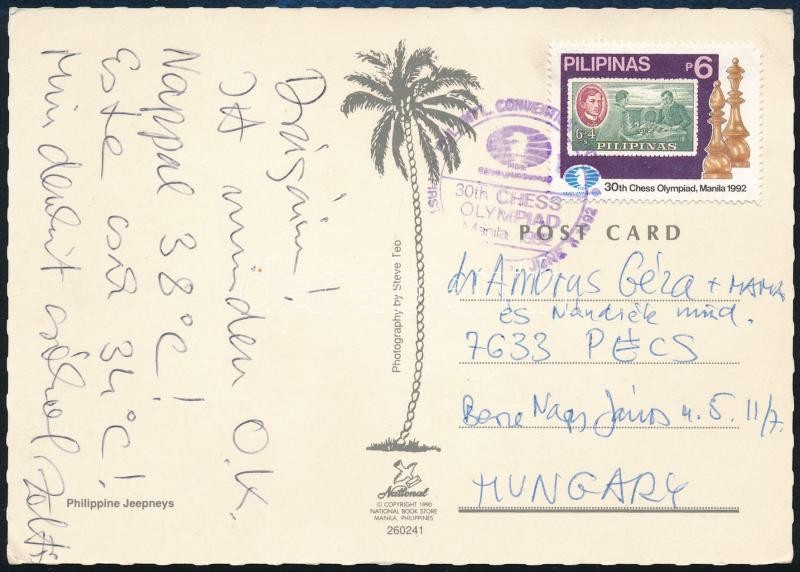 Drágáim!
Itt minden O.K.
Nappal 38°C!
Este csak 34°C!
Mindenkit csókol Zoltán
Philippine Jeepneys
Photography by Steve Teo
National
© COPYRIGHT 1990
NATIONAL BOOK STORE
MANILA, PHILIPPINES
260241
PILIPINAS P6
6+4 s
PILIPINAS
30th Chess Olympiad, Manila 1992
30th CHESS
OLYMPIAD
Manila 1992
POST CARD
dr Ambrus Géza + MAMA
és Nándiék mind.
7633 PÉCS
János u. 5. II/7.
HUNGARY